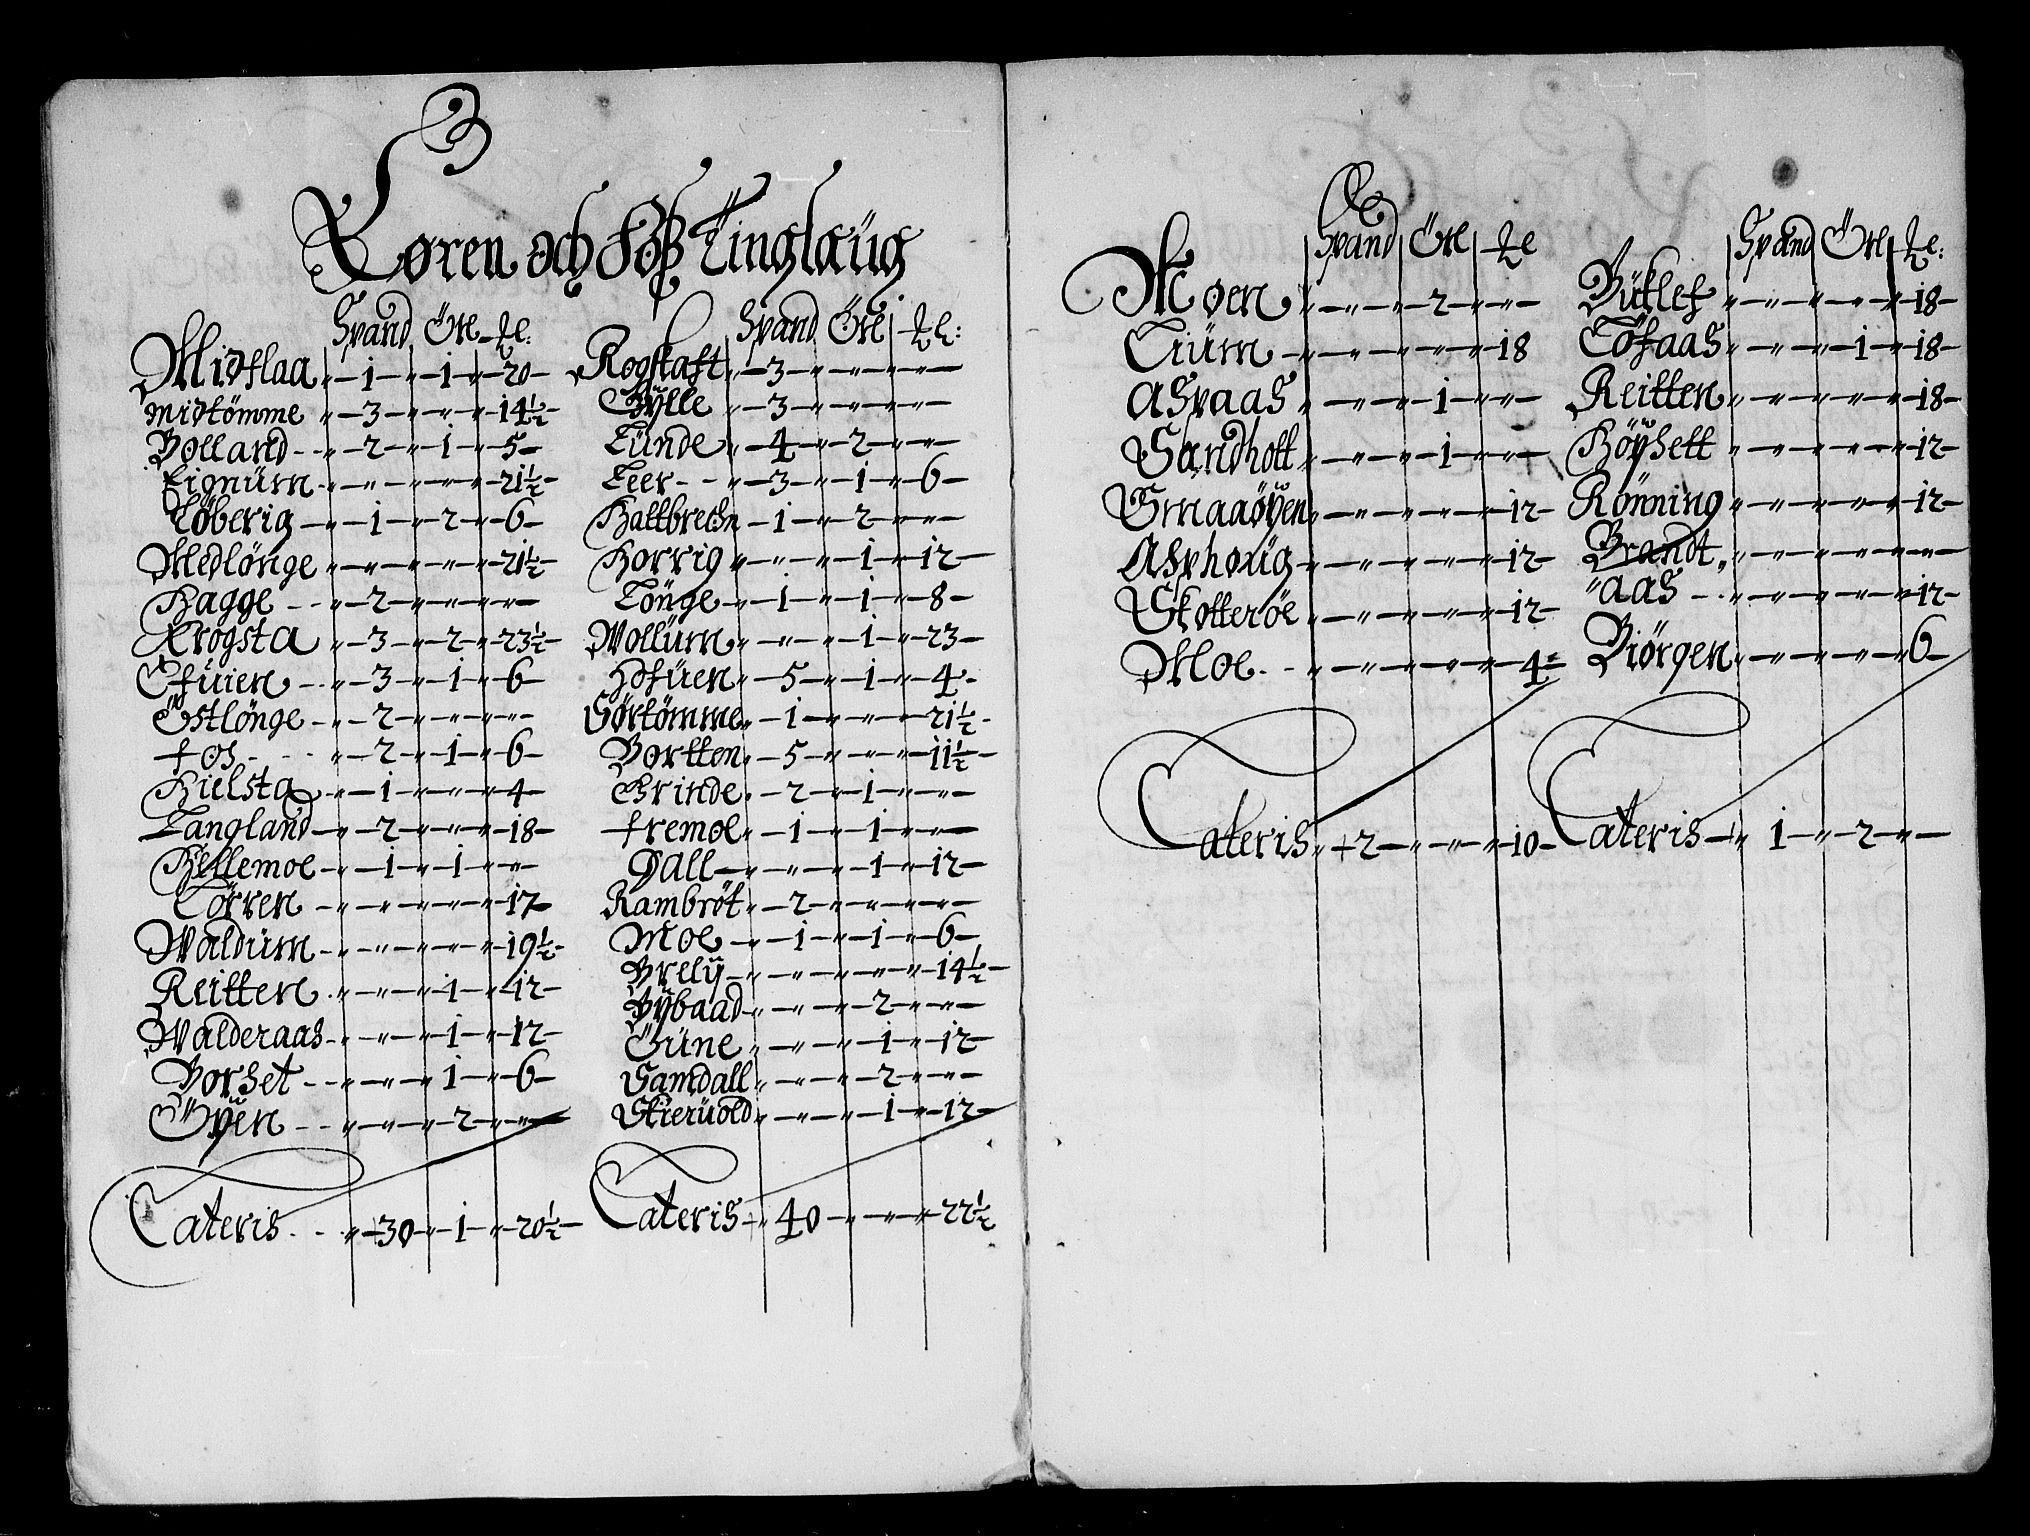 Løren och Foß Tinglaüg
Spand Öre le:
Midflaa „ 1 „ 1 „ 20
Midtömme „ 3 „ „ „ 14½
Volland „ 2 „ 1 „ 5
Lignüm „ „ „ „ „ 21½
Löberig „ 1 „ 2 „ 6
Medlönge „ „ „ „ „ 21½
Hagge „ 2 „ „ „ „
Krogsta „ 3 „ 2 „ 23½
Efüien „ 3 „ 1 „ 6
Östlönge „ 2 „ „ „ „
Fos „ 2 „ 1 „ 6
Hielsta „ 1 „ „ „ 4
Langland „ 2 „ „ „ 18
Hellemoe „ 1 „ 1 „ „
Lörren „ „ „ „ „ 17
Waldüm „ „ „ „ „ 19½
Reitten „ „ „ 1 „ 12
Walderaas „ „ „ 1 „ 12
Borset „ „ „ 1 „ 6
Öyen „ „ „ 2 „ „
Lateris „ 30 „ 1 „ 20½
Spand Öre le:
Rogstaft „ 3 „ „ „ „
Gÿlle „ 3 „ „ „ „
Lünde „ 4 „ 2 „ „
Leer „ 3 „ 1 „ 6
Hallbrechn „ 1 „ 2 „ „
Horrig „ „ „ 1 „ 12
Lönge „ 1 „ 1 „ 8
Wollüm „ „ „ 1 „ 23
Hofüen „ 5 „ 1 „ 4
Sörtömme „ 1 „ „ „ 21½
Bortten „ 5 „ „ „ 11½
Grinde „ 2 „ 1 „ „
Fremoe „ 1 „ 1 „ „
Dall „ „ „ 1 „ 12
Rambröt „ 2 „ „ „ „
Moe „ 1 „ 1 „ 6
Brelÿ „ „ „ „ „ 14½
Bÿbaad „ „ „ 2 „ „
Güne „ „ „ 1 „ 12
Samdall „ „ „ 2 „ „
Skierüold „ „ „ 1 „ 12
Lateris „ 40 „ „ „ 22½
Spand Öre le
Moen „ „ „ 2 „ „
Liüm „ „ „ „ „ 18
Aspaas „ „ „ 1 „ „
Sandhott „ „ „ 1 „ „
Smaaöÿen „ „ „ „ „ 12
Asphoüg „ „ „ „ „ 12
Skotteröe „ „ „ „ „ 12
Moe „ „ „ „ „ 4
Lateris „ 2 „ „ „ 10
Spand Öre le:
Bütlef „ „ „ „ „ 18
Löfaas „ „ „ 1 „ 18
Reitten „ „ „ „ „ 18
Höÿsett „ „ „ „ „ 12
Rönning „ „ „ „ „ 12
Brandt „ „ „ „ „ „
"aas „ „ „ „ „ 12
Biörgen „ „ „ „ „ 6
Lateris „ 1 „ 2 „